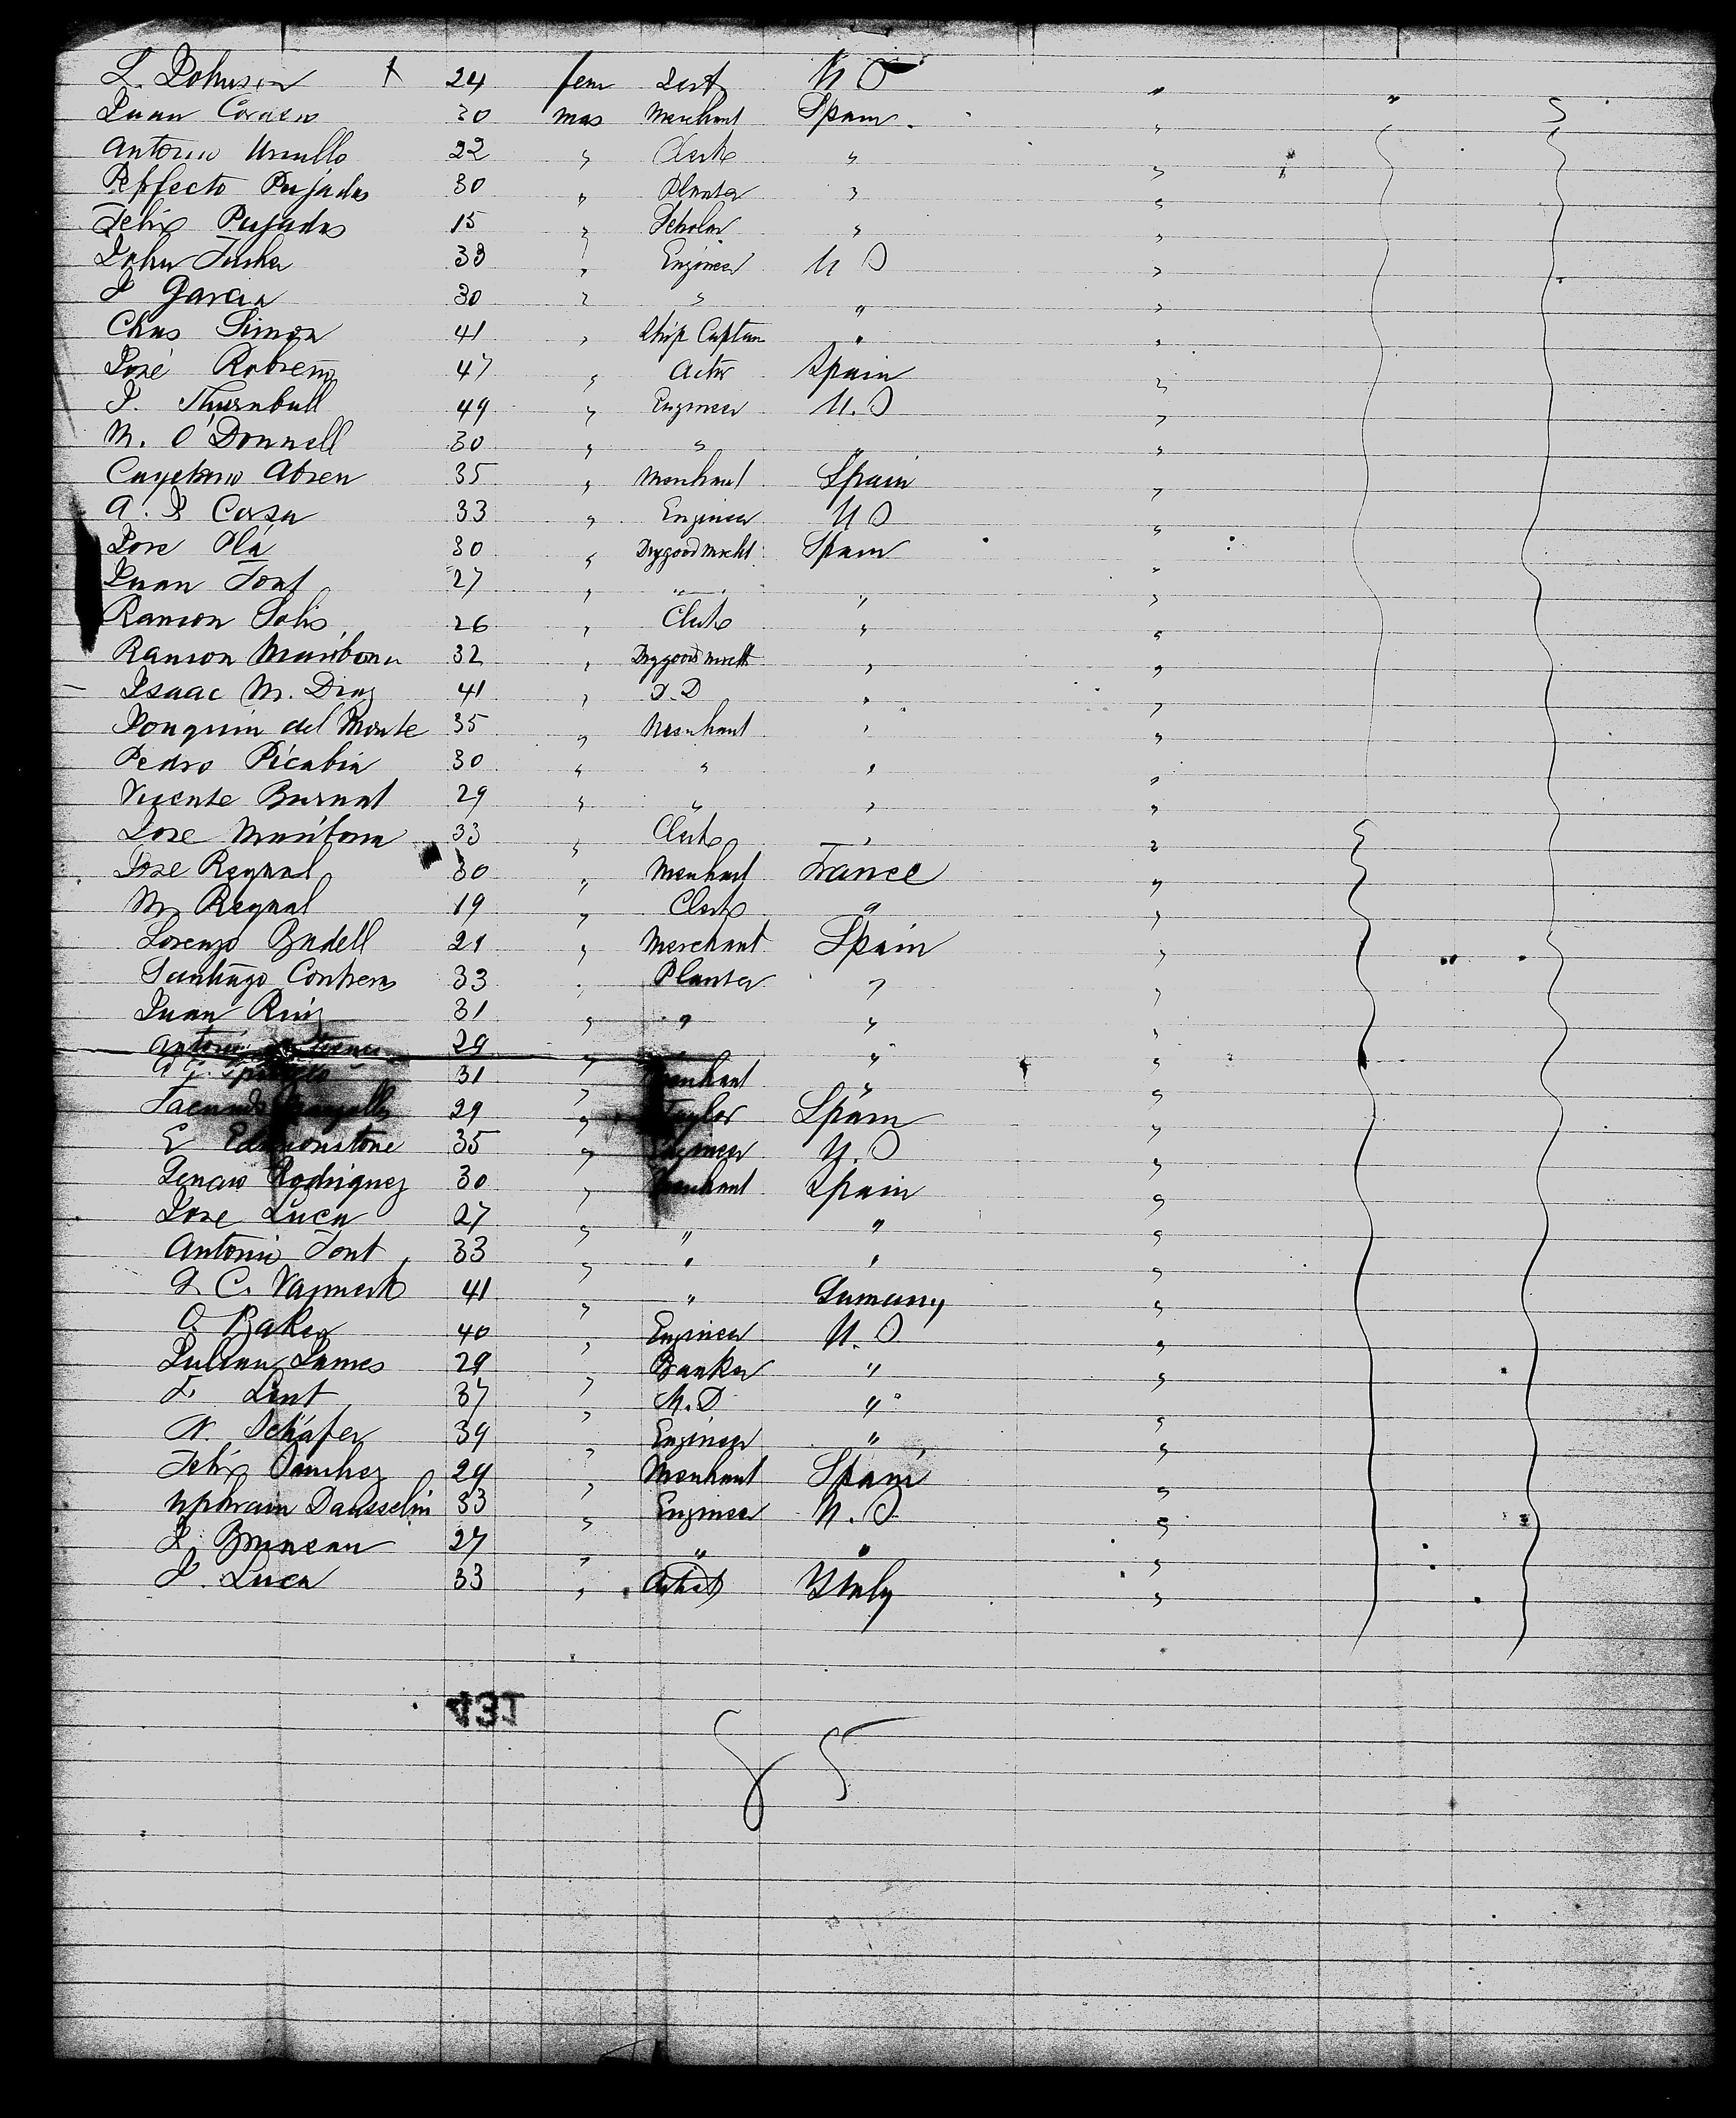 L. Johnson 24 fem U S
Juan Cordero 30 mas Merchant Spain
Antonio 22 " Clerk "
Perfecto Pujadas 30 " Planter "
Felix Pujadas 15 " Scholar "
John 33 " Engineer U S
J Garcia 30 " " "
Chas Simon 41 " Ship Captain "
José 47 " Actor Spain
J. Thurnbull 49 " Engineer U. S
M. O'Donnell 30 " " "
Cayetano Abreu 35 " Merchant Spain
A. Cossa 33 " Engineer U S
Jose Plá 30 " Drygood Mercht Spain
Juan Font 27 " " "
Ramon Solis 26 " Clerk "
Ramon Maribona 32 " Drygoods Mercht "
Isaac M. Diaz 41 " "
Joaquin del Monte 35 " Merchant "
Pedro Picabia 30 " " "
Vicente 29 " " "
Jose Maribona 33 " Clerk "
Jose Reynal 30 " Merchant France
M. Reynal 19 " Clerk "
Lorenzo Budell 21 " Merchant Spain
Santiago Contreras 33 " Planter "
Juan Ruiz 31 " " "
Antonio 29 " "
31 " Merchant "
Facundo 29 " Taylor Spain
E Edmonstone 35 " Engineer U. S
Rodriguez 30 " Merchant Spain
Jose Luca 27 " " "
Antonio Font 33 " " "
C. 41 " " Germany
O. Baker 40 " Engineer U. S
Julian James 29 " Banker "
F. Lent 37 " M. D "
N. Schäfer 39 " Engineer "
Felix Sanchez 29 " Merchant Spain
Ephraim Dausselin 33 " Engineer U. S
Bruneau 27 " " "
J. Luca 33 " Artist Italy
85